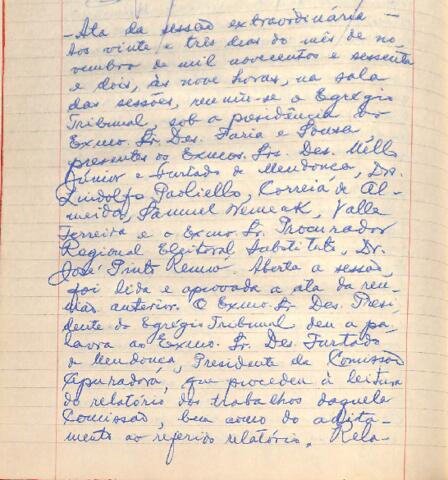 - Ata da sessão extraordinária -
Aos vinte e três dias do mês de no-
vembro de mil novecentos e sessenta
e dois, às nove horas, na sala
das sessões, reuniu-se o Egrégio
Tribunal, sob a presidência do
Exmo. Sr. Des. Faria e Sousa
presentes os Exmos. Srs. Des. Mello
Júnior e Furtado de Mendonça, Drs.
Lindolfo Paoliello, Correia de Al-
meida, Samuel Werneck, Valle
Ferreira e o Exmo Sr. Procurador
Regional Eleitoral Substituto, Dr.
José Pinto Renió. Aberta a sessão,
foi lida e aprovada a ata da reu-
nião anterior. O Exmo. Sr. Des. Presi-
dente do Egrégio Tribunal deu a pa-
lavra ao Exmo. Sr. Des. Furtado
de Mendonça, Presidente da Comissão
Apuradora, que procedeu à leitura
do relatório dos trabalhos daquela
Comissão, bem como do adita-
mento ao referido relatório. Rela-